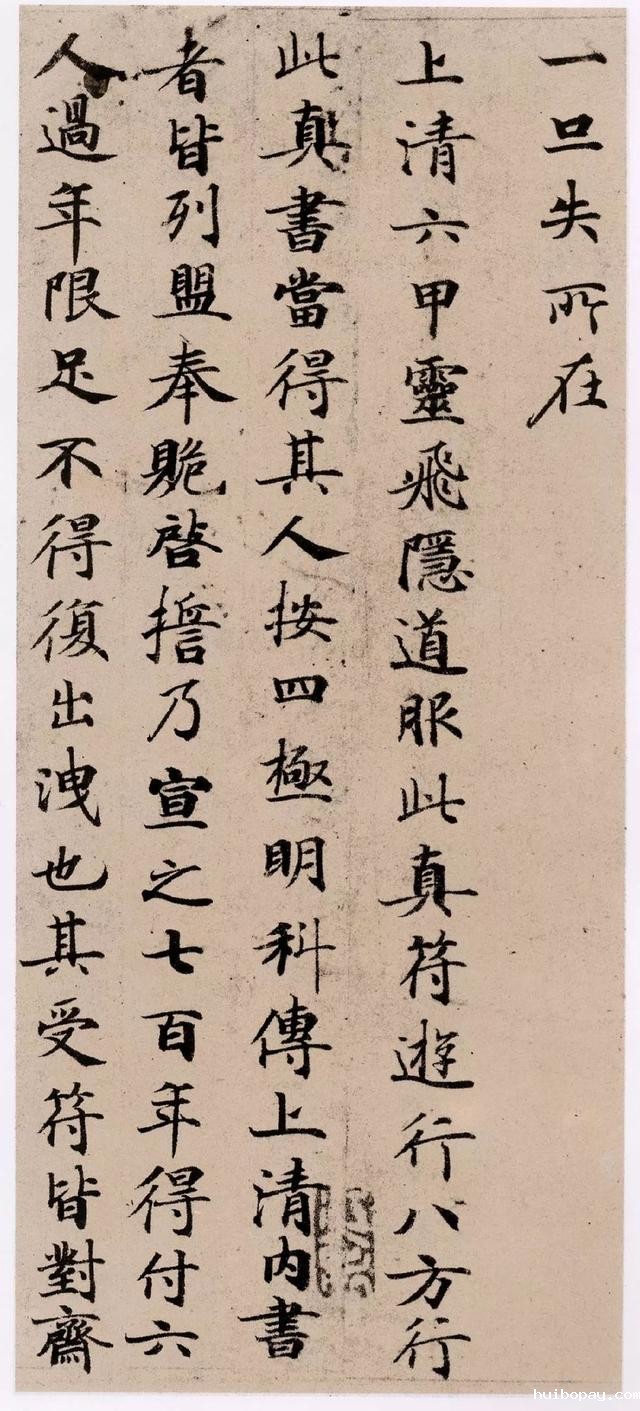 一旦失所在
上清六甲靈飛隱道服此真符遊行八方行
此真書當得其人按四極明科傳上清內書
者皆列盟奉䞈啓誓乃宣之七百年得付六
人過年限足不得復出洩也其受符皆對齋
huibopay.com